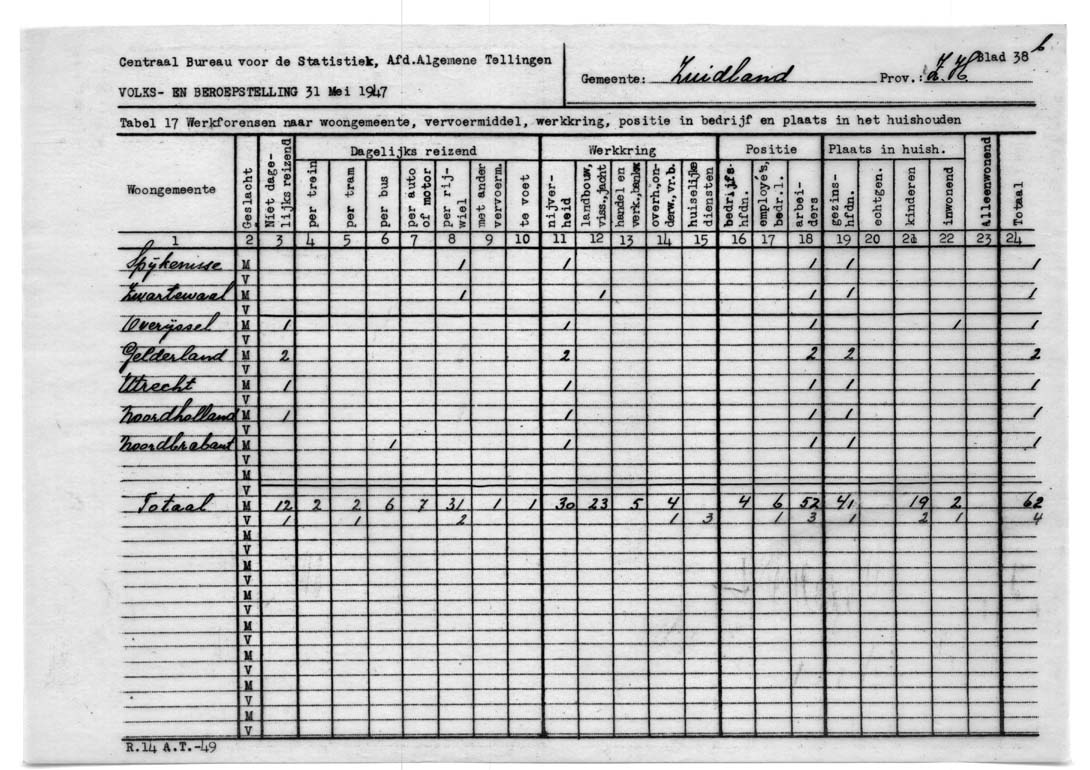 Centraal Bureau voor de Statistiek, Afd.Algemene Tellingen
VOLKS- EN BEROEPSTELLING 31 Mei 1947
Gemeente: Zuidland Prov.: Z.H. Blad 38 b
Tabel 17 Werkforensen naar woongemeente, vervoermiddel, werkkring, positie in bedrijf en plaats in het huishouden
Woongemeente Geslacht Niet dage-lijks reizend Dagelijks reizend Werkkring Positie Plaats in huish. Alleenwonend Totaal
per trein per tram per bus per auto of motor per rij-wiel met ander vervoerm. te voet nijver-heid landbouw, viss.,jacht handel en verk.,bankw overh.,on-derw.,vr.b. huiselijke diensten bedrijfs-hfdn. employé's, bedr.l. arbei-ders gezins-hfdn. echtgen. kinderen inwonend
1 2 3 4 5 6 7 8 9 10 11 12 13 14 15 16 17 18 19 20 21 22 23 24
Spijkenisse M 1 1 1 1 1
V
Zwartewaal M 1 1 1 1 1
V
Overijssel M 1 1 1 1 1
V
Gelderland M 2 2 2 2 2
V
Utrecht M 1 1 1 1 1
V
Noordholland M 1 1 1 1 1
V
Noordbrabant M 1 1 1 1 1
V
M
V
Totaal M 12 2 2 6 7 31 1 1 30 23 5 4 4 6 52 41 19 2 62
V 1 1 2 1 3 1 3 1 2 1 4
M
V
M
V
M
V
M
V
M
V
M
V
M
V
R.14 A.T.-49